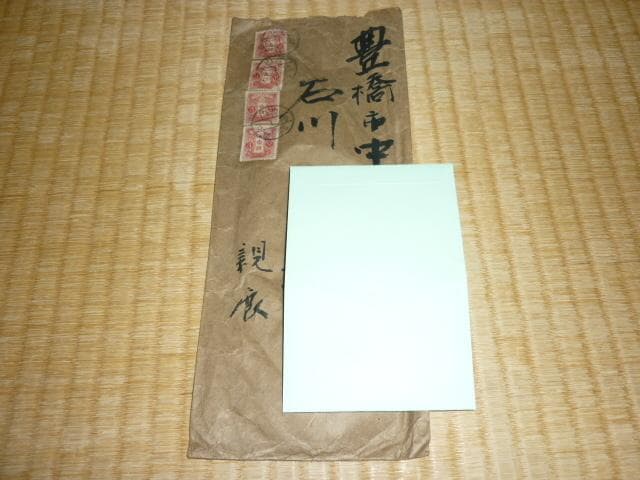 豊橋市中
石川
親展